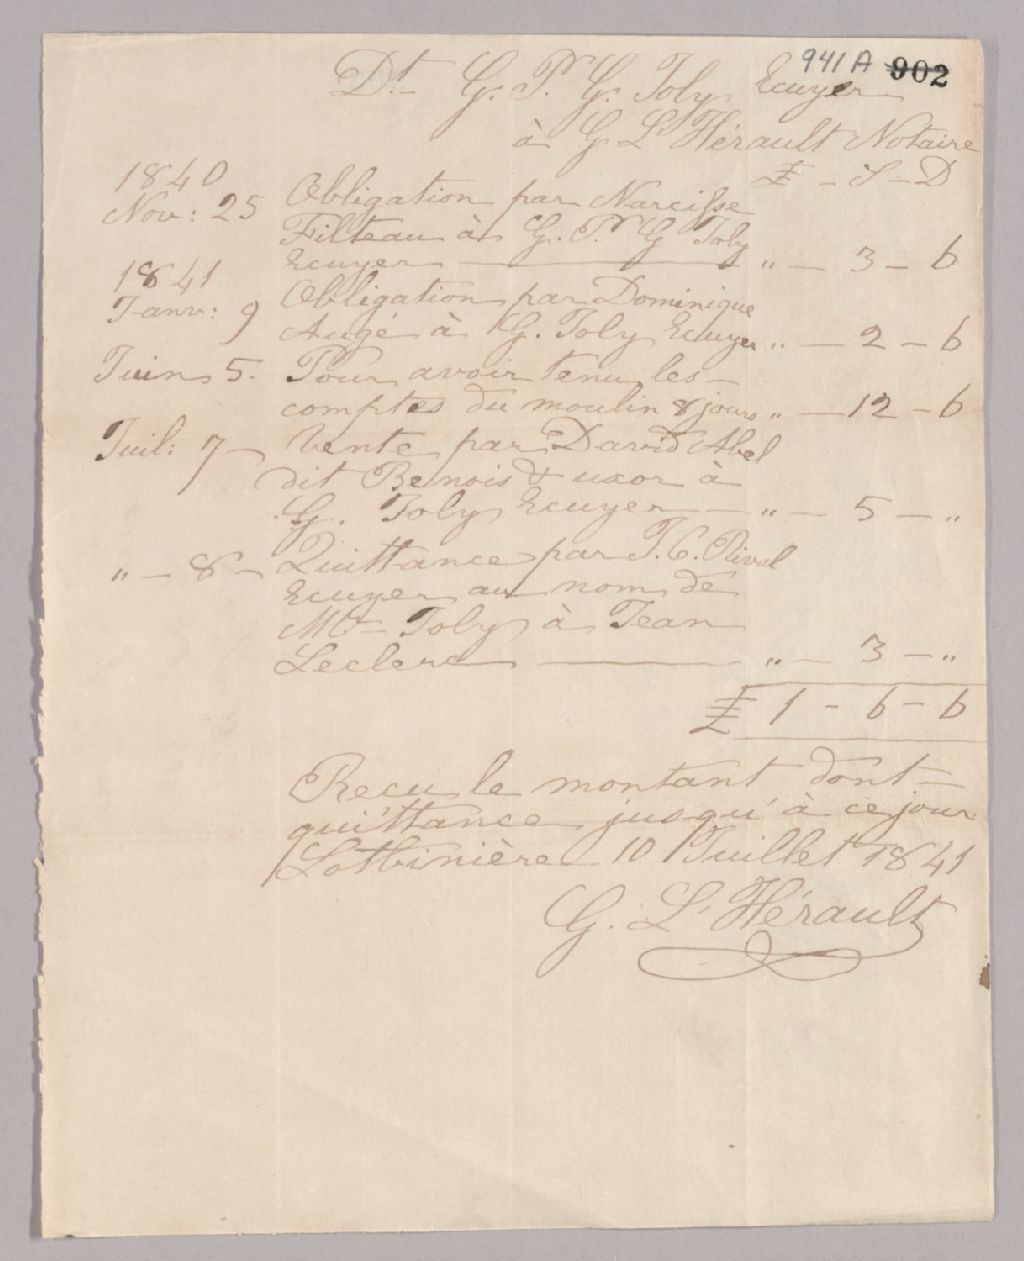 941 A 902
Dt. G. Pr. G. Joly Ecuyer
à G L'Hérault Notaire
1840 £ - S - D
Nov: 25 Obligation par Narcisse
Filteau à G. Pr. G Joly
Ecuyer „ - 3 - 6
1841
Janv: 9 Obligation par Dominique
Augé à G. Joly Ecuyer „ - 2 - 6
Juin 5. Pour avoir tenu les
comptes du moulin 8 jours „ - 12 - 6
Juil: 7 - Vente par David Abel
dit Benois & uxor à
G. Joly Ecuyer - „ - 5 - „
„ - 8 - Quittance par
Ecuyer au nom de
Mr Joly à Jean
Leclerc „ - 3 - „
£ 1 - 6 - 6
Recu le montant dont
quittance jusqu'à ce jour
Lotbinière 10 Juillet 1841
G. L'Hérault